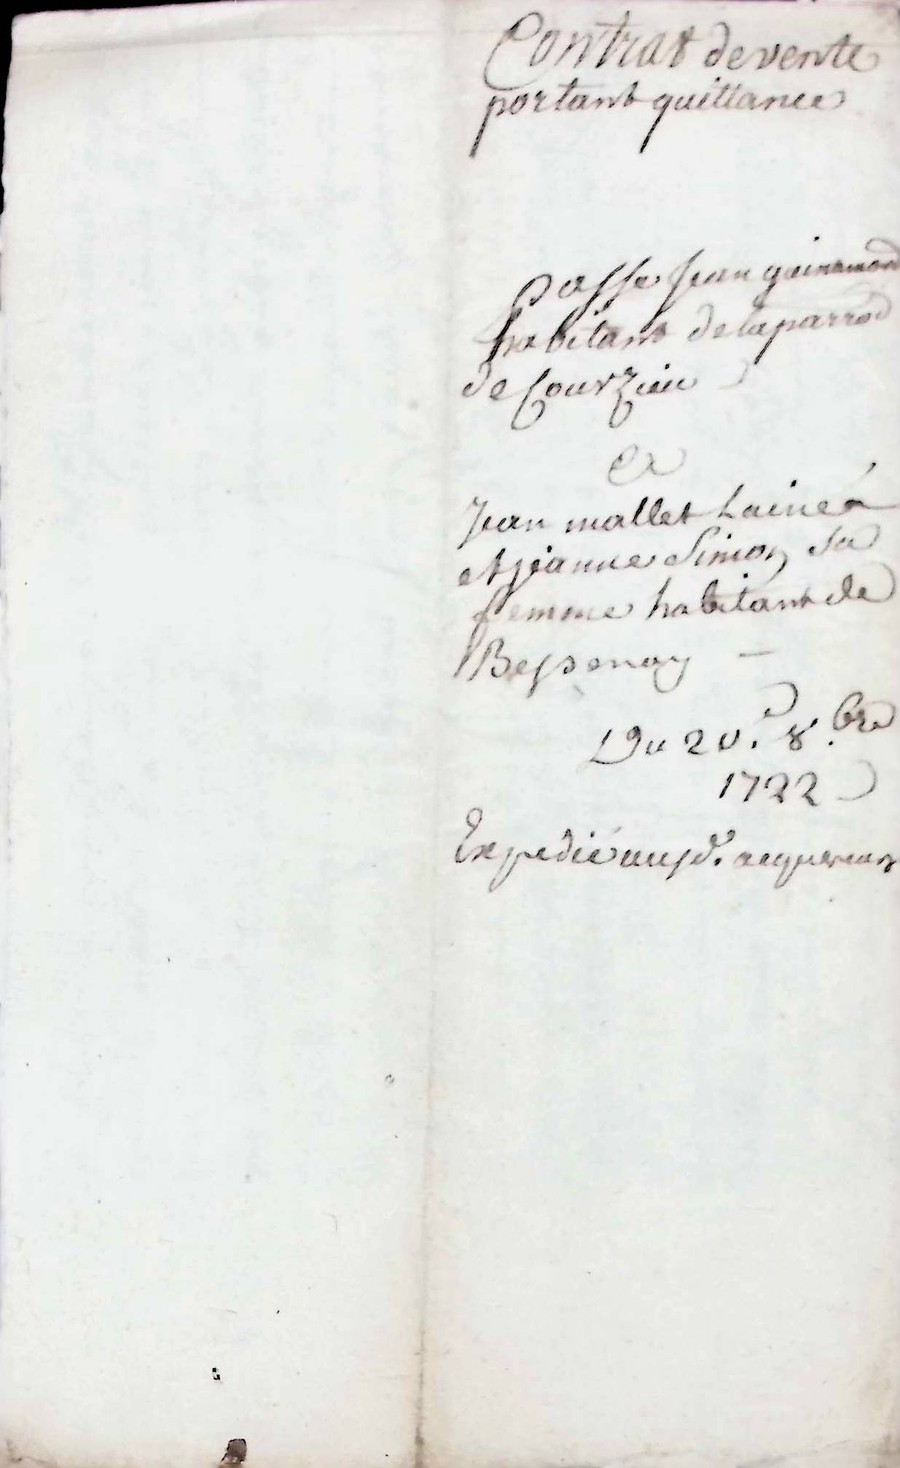 Contrat de vente
portant quittance
Passe Jean
habitant de la parrod
de Courzieu
Et
Jean mallet Lainé
et jeanne Simon sa
femme habitant de
Bessenay
Du 20.e 8.bre
1722
Expedié aud. acquereur